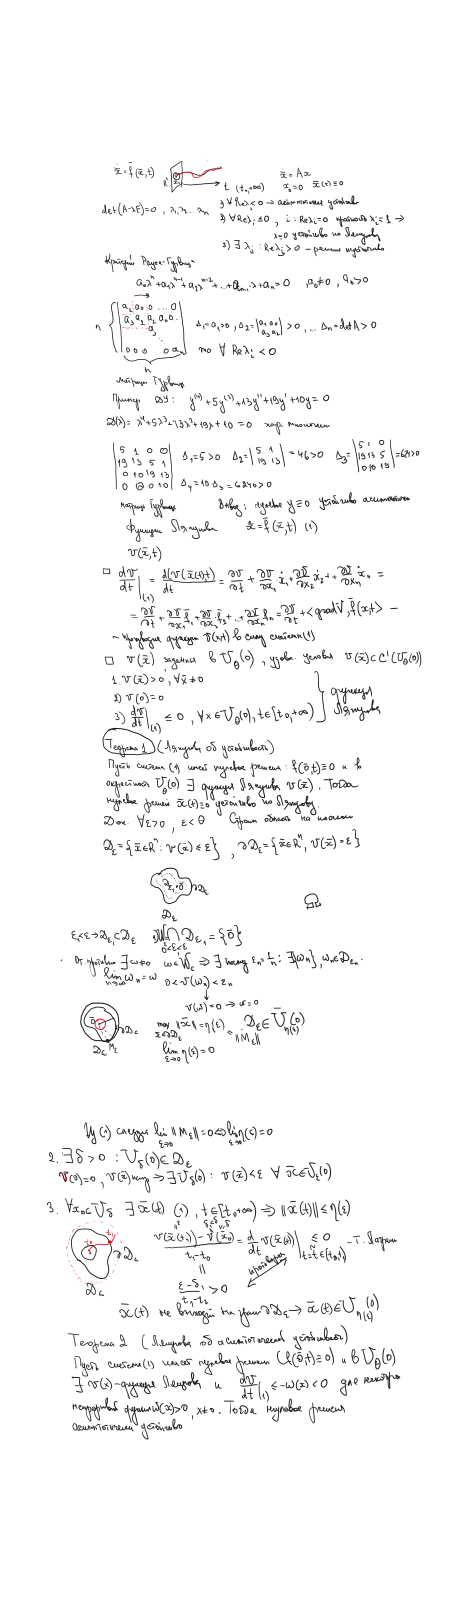 ẋ = f̄(x̄,t)
t (t₀,+∞)
ẋ = Ax
x₀=0 x̄(t)≡0
det(A-λE)=0, λ₁λ₂...λn
1) ∀ Reλi<0 → асимптотич устойчив
2) ∀ Reλi≤0, i: Reλi=0 кратность λi=1 →
x=0 устойчиво по Ляпунову
3) ∃ λj: Reλj>0 – решение неустойчиво
Критерий Рауса-Гурвица
a₀λⁿ+a₁λⁿ⁻¹+a₂λⁿ⁻²+...+aₙ₋₁λ+aₙ=0, a₀≠0, a₀>0
a₁ a₀ 0 ... 0
a₃ a₂ a₁ a₀ 0..
n
Δ₁=a₁>0, Δ₂=|a₁ a₀ a₃ a₂|>0, ... Δn=detA>0
0 0 0 0 aₙ то ∀ Reλi<0
n
матрица Гурвица
Пример ДУ: y⁽⁴⁾+5y⁽³⁾+13y''+19y'+10y=0
λ⁴+5λ³+13λ²+19λ+10=0 хар многочлен
5 1 0 0
19 13 5 1
0 10 19 13
0 0 0 10
Δ₁=5>0 Δ₂=|5 1 19 13|=46>0 Δ₃=|5 1 0 19 13 5 0 10 19|
матрица Гурвица Вывод: нулевое y≡0 устойчиво асимптотич
Функции Ляпунова ẋ=f̄(x̄,t) (1)
v(x̄,t)
□ dv/dt|(1) = d(v(x̄(t),t)/dt = ∂v/∂t + ∂v/∂x₁·ẋ₁+∂v/∂x₂ẋ₂+..+∂v/∂xn ẋn =
= ∂v/∂t+∂v/∂x₁f₁+∂v/∂x₂f₂+..+∂v/∂xn fn=∂v/∂t+<grad v, f̄(x,t)> –
~ производная функции v(x,t) в силу системы (1)
□ v(x̄) задана в Uθ(0), удовл. условия v(x̄)⊂C¹(Uθ(0))
1. v(x̄)>0, ∀x̄≠0
2) v(0)=0
3) dv/dt|(1) ≤0, ∀x∈Uθ(0), t∈[t₀,+∞)
функция
Ляпунова
Теорема 1 (Ляпунова об устойчивости)
Пусть система (1) имеет нулевое решение: f(ō,t)≡0 и в
окрестности Uθ(0) ∃ функция Ляпунова v(x̄). Тогда
нулевое решение x̄(t)≡0 устойчиво по Ляпунову
Док. ∀ε>0, ε<θ Строим область на плоскости
Dε={x̄∈Rⁿ: v(x̄)≤ε}, ∂Dε={x̄∈Rⁿ, v(x̄)=ε}
Dε₁ ∂Dε
Dε
ε₁<ε→Dε₁⊂Dε ⋂Dε₁={ō}
0<ε₁<ε
От против ∃w≠0 w∈Dε ⇒ ∃ послед εn=1/n: ∃{wn}, wn∈Dεn
lim wn=w 0<v(wn)<εn
n→∞
v(w)=0→w=0
max ||x̄||=η(ε)=||Mε|| Dε∈Ūη(ε)(0)
x∈∂Dε
lim η(ε)=0
ε→0
∂Dε
Dε Mε
Из (1) следует lim||Mε||=0⇔lim η(ε)=0
ε→0 ε→0
2. ∃δ>0: Uδ(0)∈Dε
v(0)=0, v(x̄) непр ⇒ ∃Uδ(0): v(x̄)<ε ∀x̄∈Uδ(0)
3. ∀x₀⊂Uδ ∃x̄(t) (1), t∈[t₀,+∞) ⇒ ||x̄(t)||≤η(ε)
v(x̄(t₁))-v(x̄₀)/t₁-t₀ = d/dt v(x̄(t))|t=t̃∈(t₀,t₁) ≤0 –т. Лагран
∂Dε
Dε
ε-δ₁/t₁-t₂>0
противореч
x̄(t) не выходит за гран ∂Dε→x̄(t)∈Uη(ε)(0)
Теорема 2 (Ляпунова об асимптотической устойчивости)
Пусть система (1) имеет нулевое решение (f(ō,t)≡0) и в Uθ(0)
∃ v(x)-функция Ляпунова и dv/dt|(1) ≤-w(x)<0 для некотор
непрерывной функции w(x)>0, x≠0. Тогда нулевое решение
асимптотически устойчиво